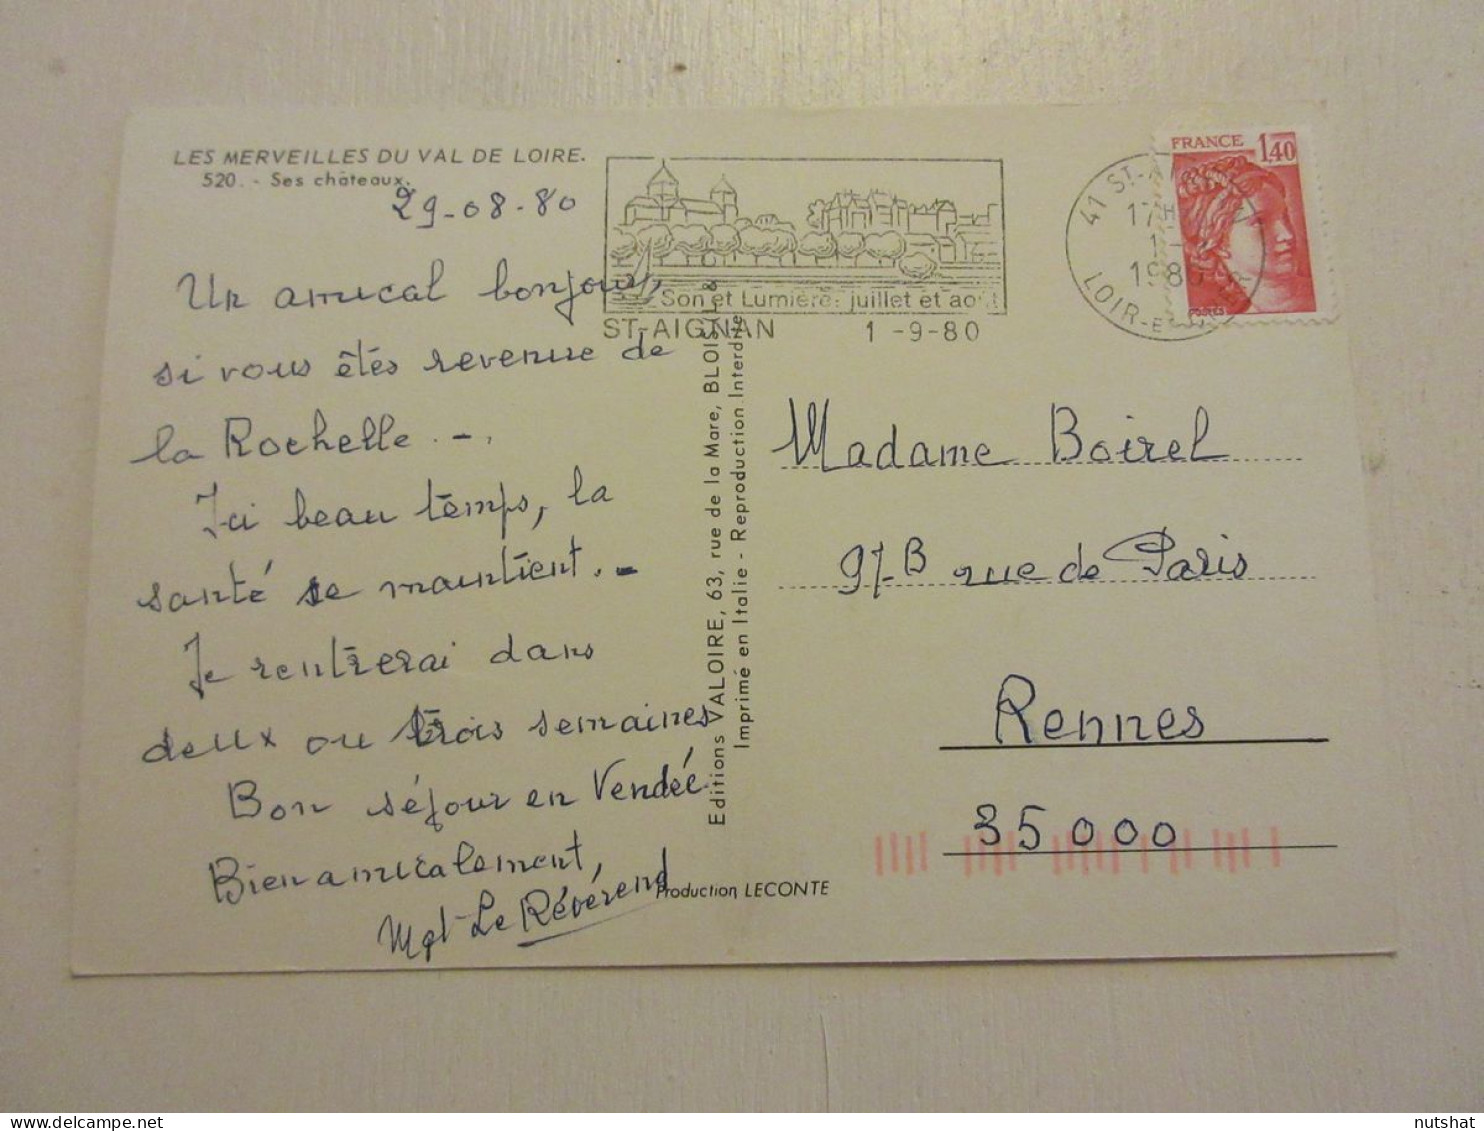 LES MERVEILLES DU VAL DE LOIRE.
520. - Ses châteaux.
29-08-80
Un amical bonjour,
si vous êtés revenue de
la Rochelle . - .
Ici beau temps, la
santé se maintient. -
Je rentrerai dans
deux ou trois semaines
Bon séjour en Vendée
Bien amicalement,
Mgt Le Révérend
Editions VALOIRE, 63, rue de la Mare, BLOIS
Imprimé en Italie - Reproduction Interdite
Production LECONTE
Son et Lumière: juillet et août
ST-AIGNAN 1 -9-80
41 ST-AI
17H
1
1980
LOIR-E
FRANCE 1,40
POSTES
Madame Boirel
97-B rue de Paris
Rennes
35000
nutshat